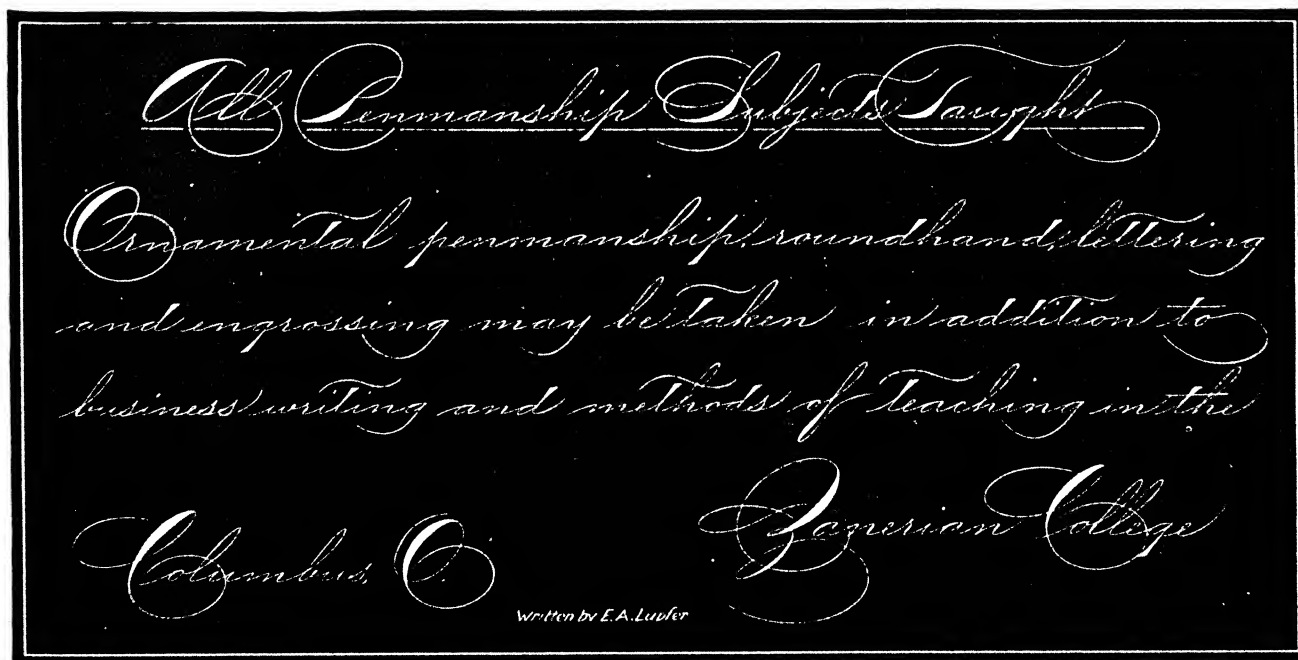 All Penmanship Subjects Taught
Ornamental penmanship, roundhand, lettering
and engrossing may be taken in addition to
business writing and methods of teaching in the
Zanerian College
Columbus, O.
Written by E. A. Lupfer